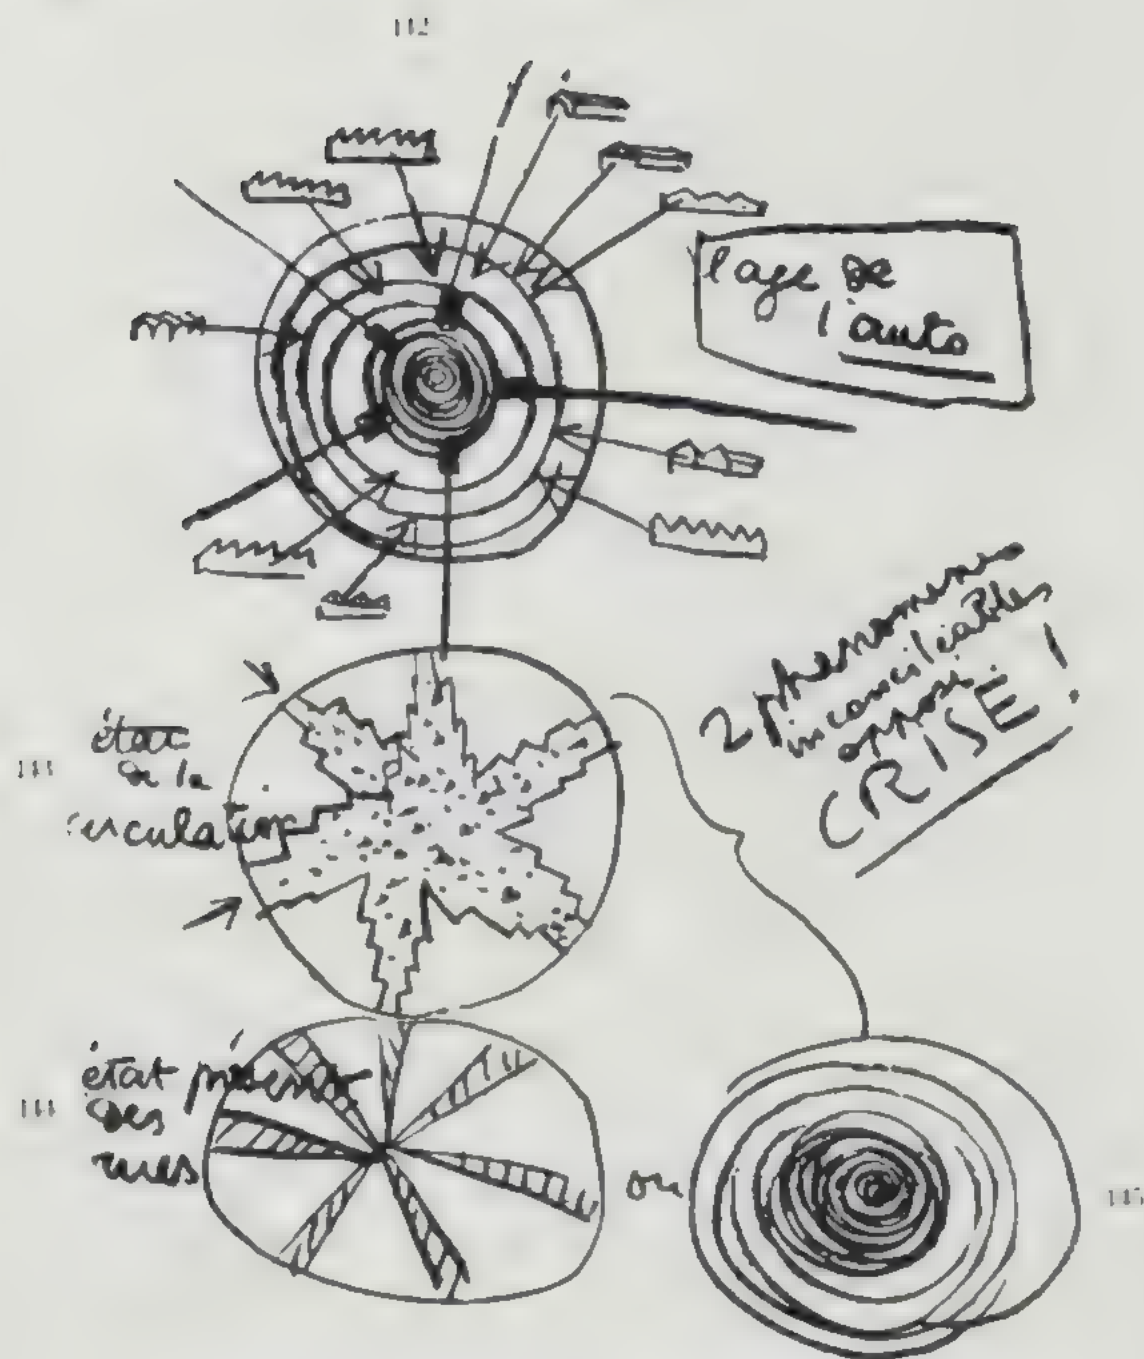 112
l'age de
l'auto
2 phénomènes
inconciliables
opposi.
CRISE !
113
état
de la
circulation
144
état présent
des
rues
ou
145